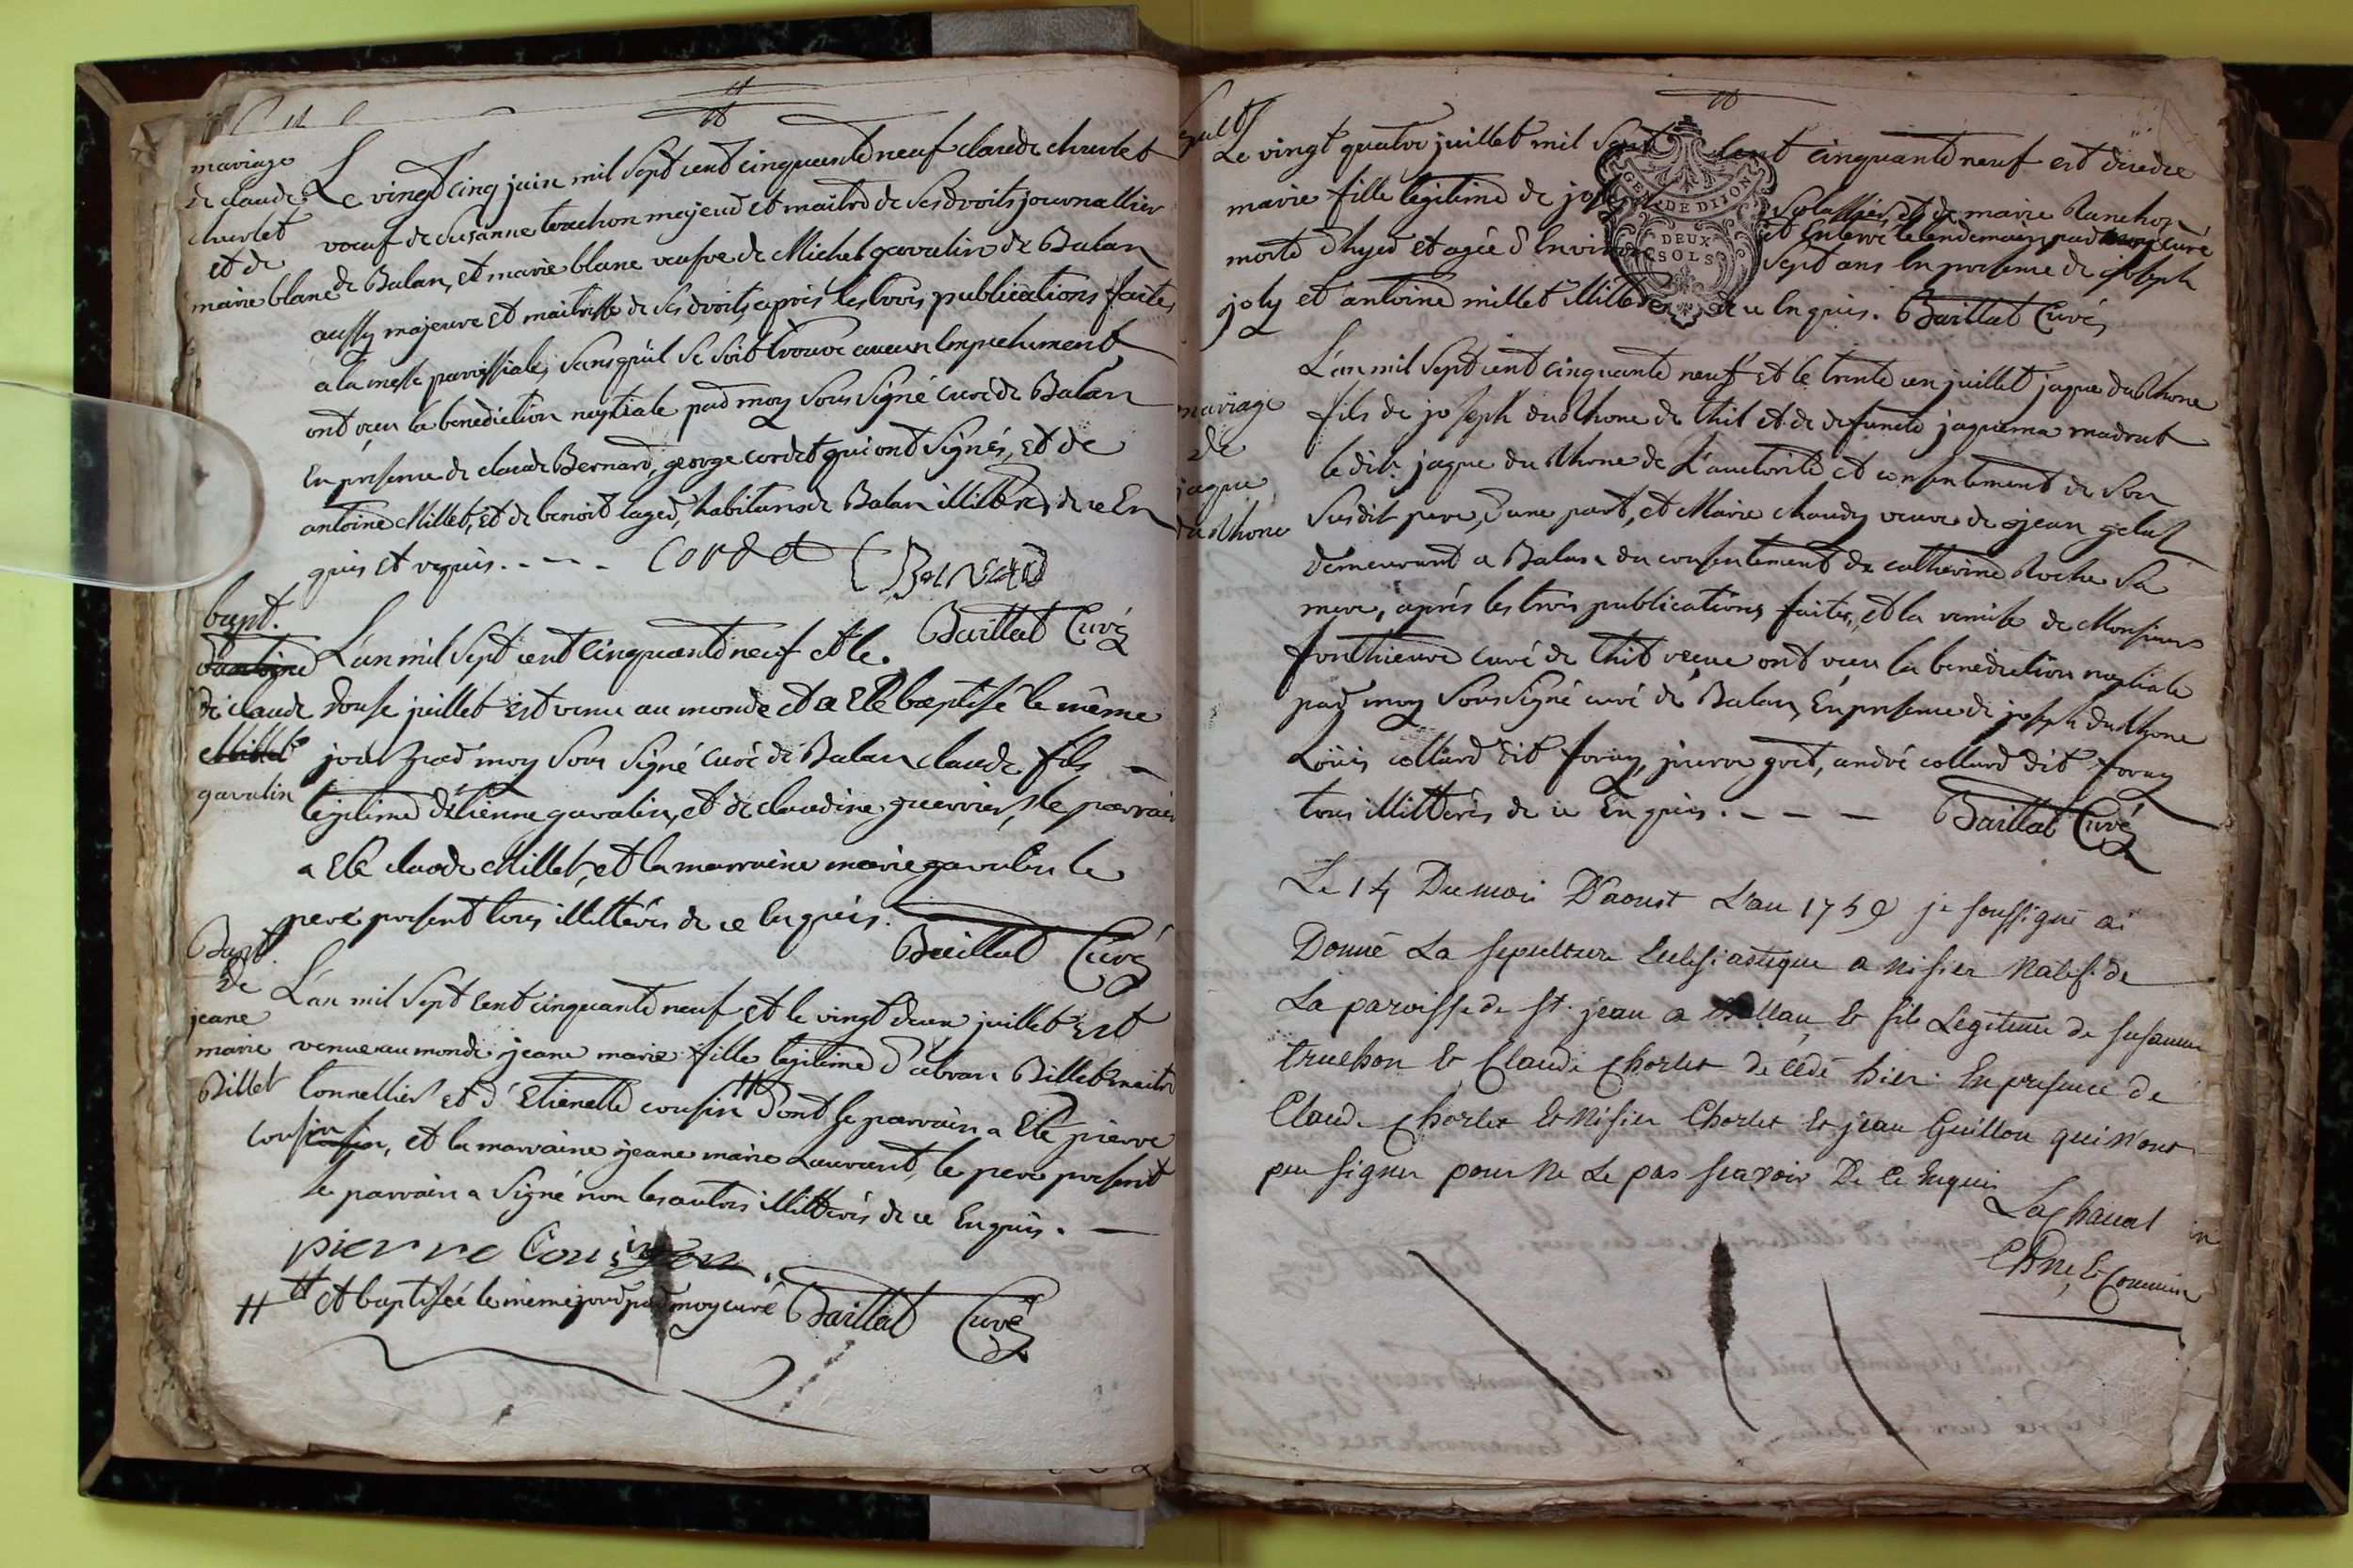 mariage
de claude
churlet
et de
marie blanc
Le vingt cinq juin mil sept cent cinquante neuf claude churlet
vœuf de Susanne truchon majeur et maitre de ses droits journallier
de Balan, et marie blanc veufve de Michel gavalin de Balan
aussy majeure et maitresse de ses droits, après les trois publications faites
a la messe paroissiale, sans qu'il se soit trouvé aucun empechement
ont reçu la benediction nuptiale par moy sous signé curé de Balan
En presence de claude Bernard, george cordet qui ont signés, et de
antoine Millet, et de benoit laged, habitans de Balan illitterés de ce En
quis et requis. - - - cordet Bernard
Baillat Curé
bapt.
d'antoine
de claude
Millet
gavalin
L'an mil sept cent cinquante neuf et le
douse juillet est venu au monde et a eté baptisé le même
jour par moy sous signé curé de Balan claude fils
legitime d'étienne gavalin, et de claudine guerrier, le parrain
a eté claude Millet, et la marraine marie gavalin le
pere present tous illitterés de ce enquis.
Baillat Curé
Bapt.
de
jeane
marie
Billet
L'an mil sept cent cinquante neuf et le vingt deux juillet est
venue au monde jeane marie fille legitime d' Billet maitre
tonnellier et d'Etienette cousin # dont le parrain a eté pierre
cousin, et la marraine jeane marie Laurent, le pere present
le parrain a signé non les autres illitterés de ce enquis.
pierre Cousin
# et baptisée le même jour par moy curé Baillat Curé
Sepult
Le vingt quatre juillet mil sept cent cinquante neuf est decedée
marie fille legitime de joseph et de marie Ranchon
et enterré le lendemain par curé
morte d'hyer et agée d'environ sept ans en presence de joseph
joly et antoine millet illitterés de ce enquis. Baillat Curé
GEN. DE DIJON
DEUX
SOLS
mariage
de
jaque
du Rhone
L'an mil sept cent cinquante neuf et le trente un juillet jaque du Rhone
fils de joseph du Rhone de thil et de defuncte jaquema madrat
le dit jaque du Rhone de L'autorité et consentement de son
susdit pere, d'une part, et Marie chaudy veuve de jean gelat
demeurant a Balan du consentement de catherine Roche sa
mere, après les trois publications faites, et la remise de Monsieur
fonthieure curé de thil reçue ont reçu la benediction nuptiale
par moy sous signé curé de Balan, En presence de joseph du Rhone
Loüis collard dit foray, pierre goet, andré collard dit foray
tous illitterés de ce enquis. - - - Baillat Curé
Le 14 Du mois D'aoust L'an 1759 je soussigné ai
Donné La sepulture Eclesiastique a nisier Natif de
La paroisse de st. jean a Ballan & fils Legitime de susanne
truchon & Claude Chorlet decédé hier. En presence de
Claude Chorlet & Nisier Chorlet & jean Guillon qui n'ont
peu signer pour ne Le pas scavoir De ce Enquis
Lachanal